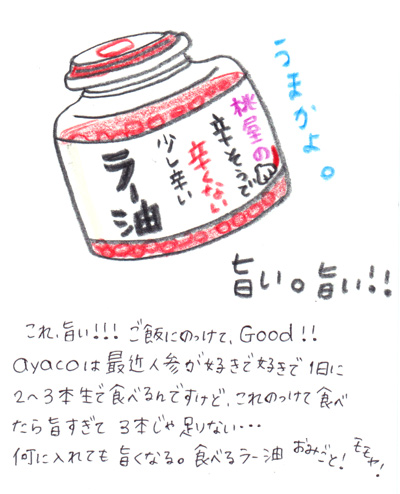 うまかよ。
桃屋の
辛そうで
辛くない
少し辛い
ラー油
旨い。旨い!!
これ、旨い!!! ご飯にのっけて、Good!!
ayacoは最近人参が好きで好きで1日に
2〜3本生で食べるんですけど、これのっけて食べ
たら旨すぎて 3本じゃ足りない・・・
何に入れても旨くなる。食べるラー油 おみごと! モモヤ!